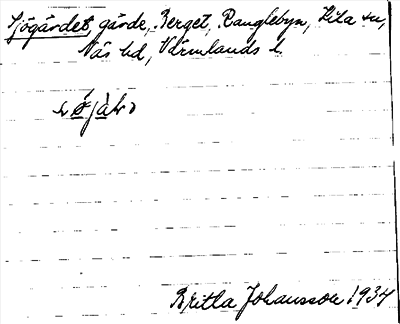 Sjögärdet, gärde, Berget, Ranglebyn, Kila sn,
Näs hd, Värmlands l.
Britta Johansson 1934